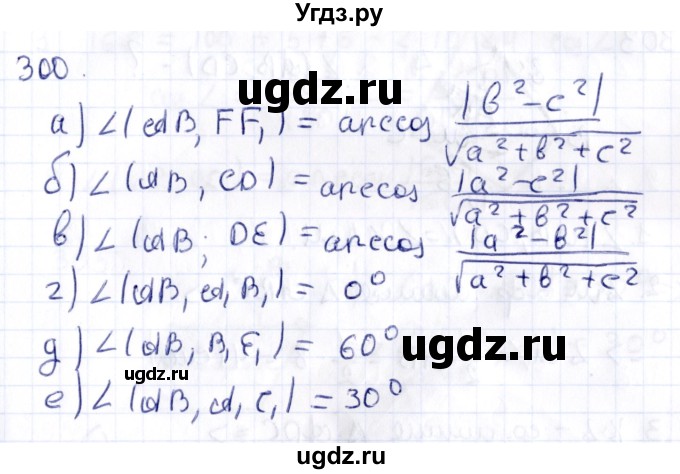 Угдз.ру
300.
ugdz.ru
а) ∠(AB, FF₁) = arccos |в²-c²| / √a²+в²+c²
б) ∠(AB, CD) = arccos |a²-c²| / √a²+в²+c²
в) ∠(AB; DE) = arccos |a²-в²| / √a²+в²+c²
г) ∠(AB, A₁B₁) = 0°
д) ∠(AB; B₁F₁) = 60°
ugdz.ru
ugdz.ru
е) ∠(AB, A₁C₁) = 30°
ugdz.ru
ugdz.ru